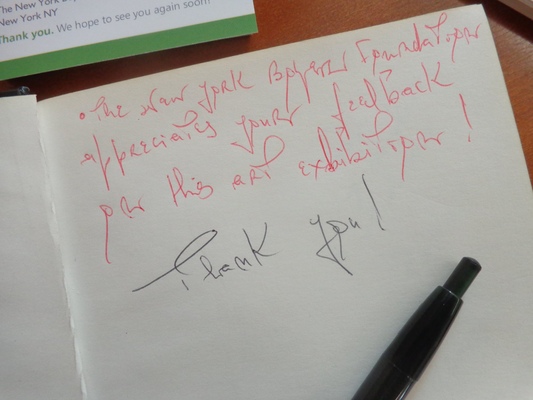 The New York
New York NY
Thank you. We hope to see you again soon!
• The New York Bolger Foundation
appreciates your feedback
on this art exhibition!
Thank you!